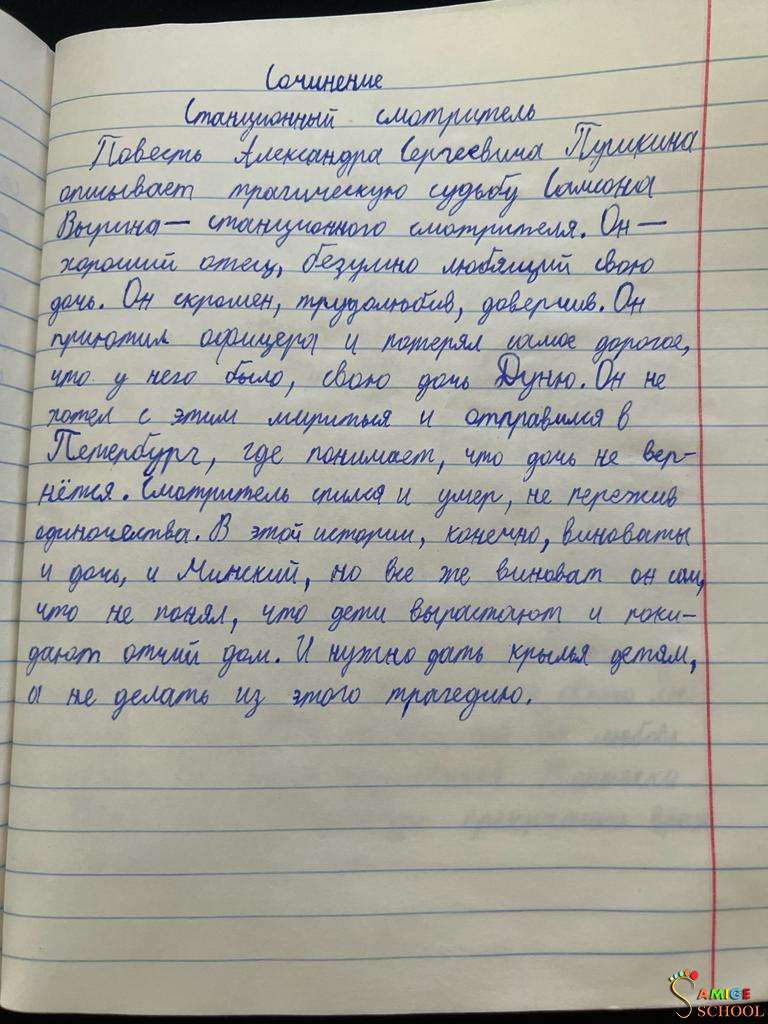 Сочинение
Станционный смотритель
Повесть Александра Сергеевича Пушкина
описывает трагическую судьбу Самсона
Вырина— станционного смотрителя. Он—
хороший отец, безумно любящий свою
дочь. Он скромен, трудолюбив, доверчив. Он
приютил офицера и потерял самое дорогое,
что у него было, свою дочь Дуню. Он не
хотел с этим мириться и отправился в
Петербург, где понимает, что дочь не вер-
нётся. Смотритель спился и умер, не пережив
одиночества. В этой истории, конечно, виноваты
и дочь, и Минский, но все же виноват он сам,
что не понял, что дети вырастают и поки-
дают отчий дом. И нужно дать крылья детям,
а не делать из этого трагедию.
SAMIGE
SCHOOL